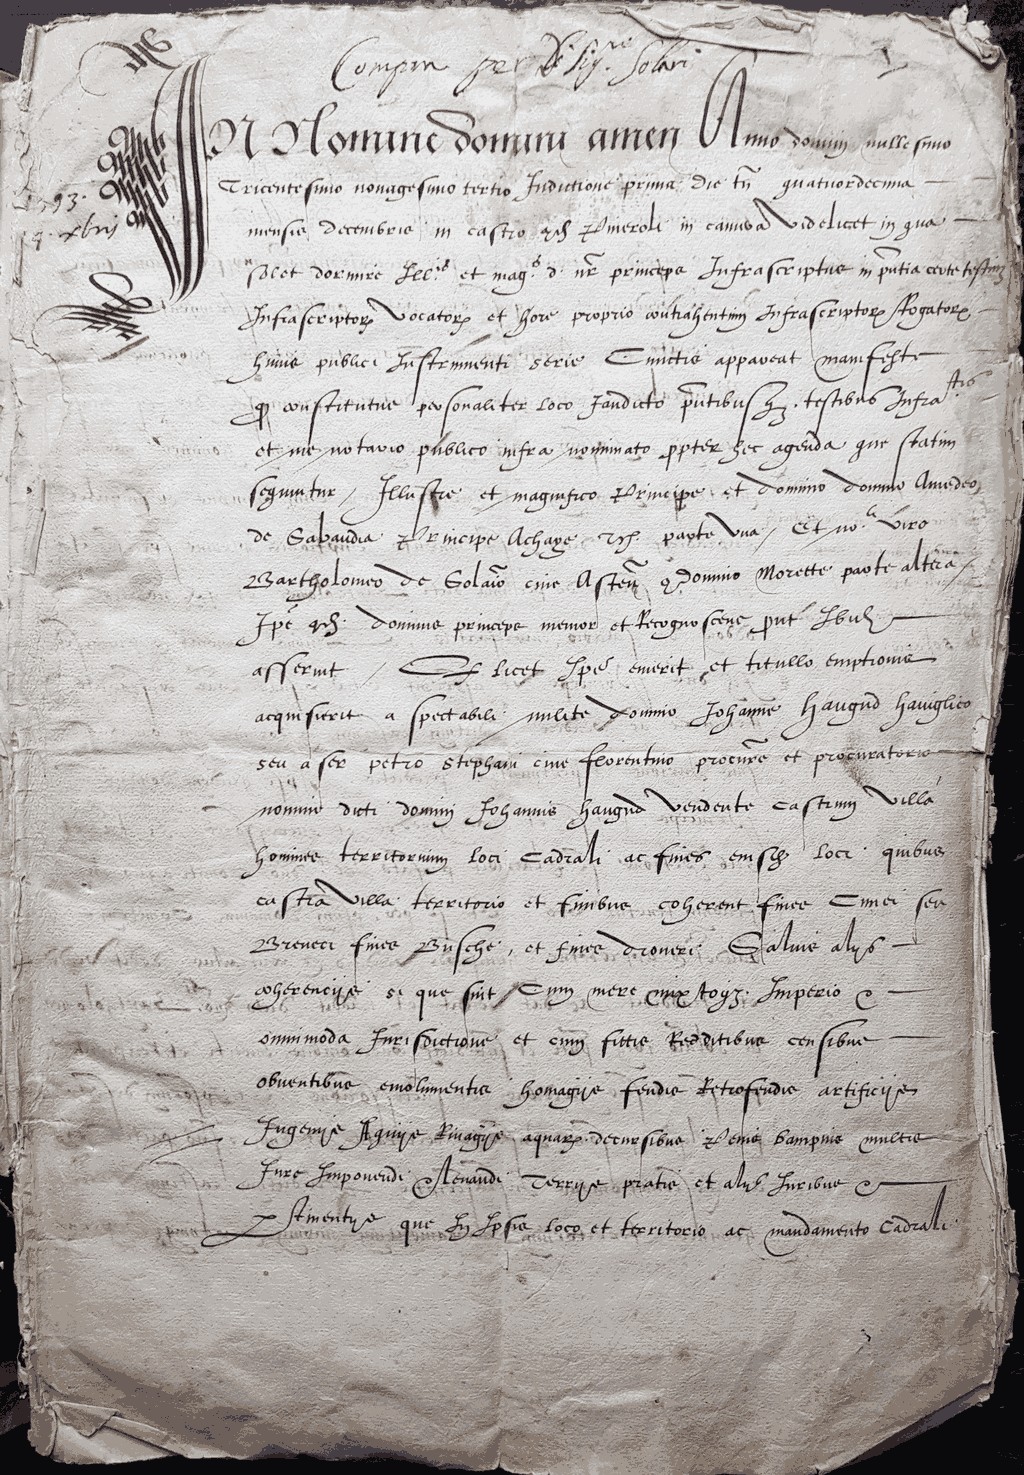 Compra per Sig.re Solari
1393.
IN Nomine domini amen Anno domini millesimo
Tricentesimo nonagesimo tertio Indictione prima die quatuordecima
mensis decembris in castro Pineroli in camera videlicet in qua
solet dormire Ill.s et mag.s d. nr princeps Infrascriptus in pntia
Infrascriptor vocator et hore proprio contrahentium Infrascriptor Rogator
huius publici Instrumenti serie Cunctis appareat manifeste
constitutus personaliter loco Iamdicto testibus Infra
et me notario publico infra nominato ppter hec agenda que statim
sequuntur / Illustre et magnifico Principe et domino domino Amedeo
de Sabaudia Principe Achaye parte una / Et no.li viro
Bartholomeo de Solario cive Asten domino Morette parte altera
Ipe dominus princeps memor et Recognoscens put
asserunt / licet Ipe emerit et titullo emptionis
acquisierit a spectabili milite domino Iohanne haugud haviglico
seu a ser petro stephani cive florentino procure et procuratorio
nomine dicti domini Iohannis haugud vendente castrum villa
homines territorium loci Cadrali ac fines loci quibus
castra villa territorio et finibus coherent fines Cunei seu
Breneci fines Busche, et fines droneri Salvis alijs
coherencijs si que sint / Cum mero Imperio &
omnimoda Iurisdictione et cum fictis Redditibus censibus
obventibus emolumentis homagijs feudis Retrofeudis artificijs
Ingenijs Aquijs Rivagijs aquar decursibus Penis bampnis multis
Iure Imponendi & levandi Terrijs pratis et alijs Iuribus &
ptinentijs que In Ipsis loco et territorio ac mandamento Cadrali